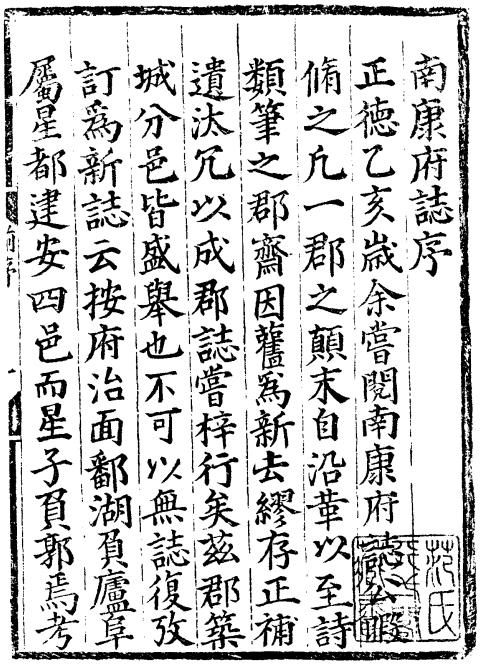 南康府誌序
正德乙亥嵗余嘗閱南康府誌公暇
脩之凢一郡之顛末自沿革以至詩
類筆之郡齋因舊爲新去繆存正補
遺汰冗以成郡誌嘗梓行矣茲郡築
城分邑皆盛舉也不可以無誌復攷
訂爲新誌云按府治面鄱湖負廬阜
屬星都建安四邑而星子負郭焉考
范氏